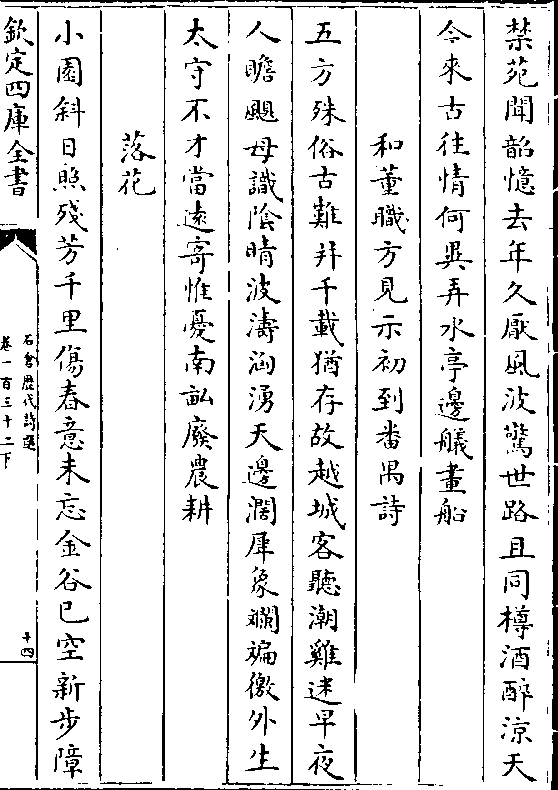 禁苑聞韶憶去年久厭風波驚世路且同樽酒醉涼天
今來古往情何異弄水亭邊艤畫船
和董職方見示初到番禺詩
五方殊俗古難并千載猶存故越城客聽潮雞迷早夜
人瞻颶母識陰晴波濤洶湧天邊濶犀象斓斒徼外生
太守不才當遠寄惟憂南畝廢農耕
落花
小園斜日照殘芳千里傷春意未忘金谷已空新步障
欽定四庫全書
石倉歷代詩選
卷一百三十二下
十四